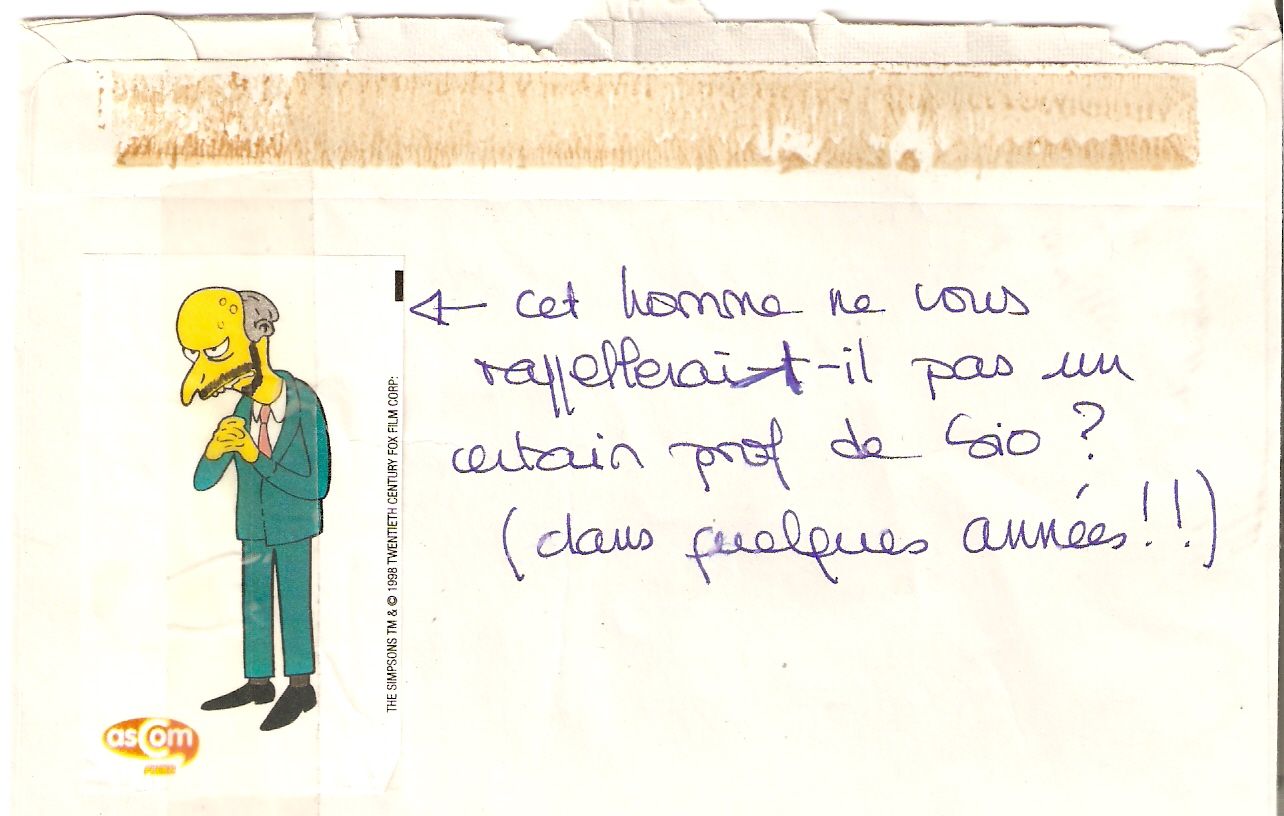 ← cet homme ne vous
rappellerait-il pas un
certain prof de Sio ?
(dans quelques années!!)
THE SIMPSONS TM & © 1998 TWENTIETH CENTURY FOX FILM CORP:
asCom